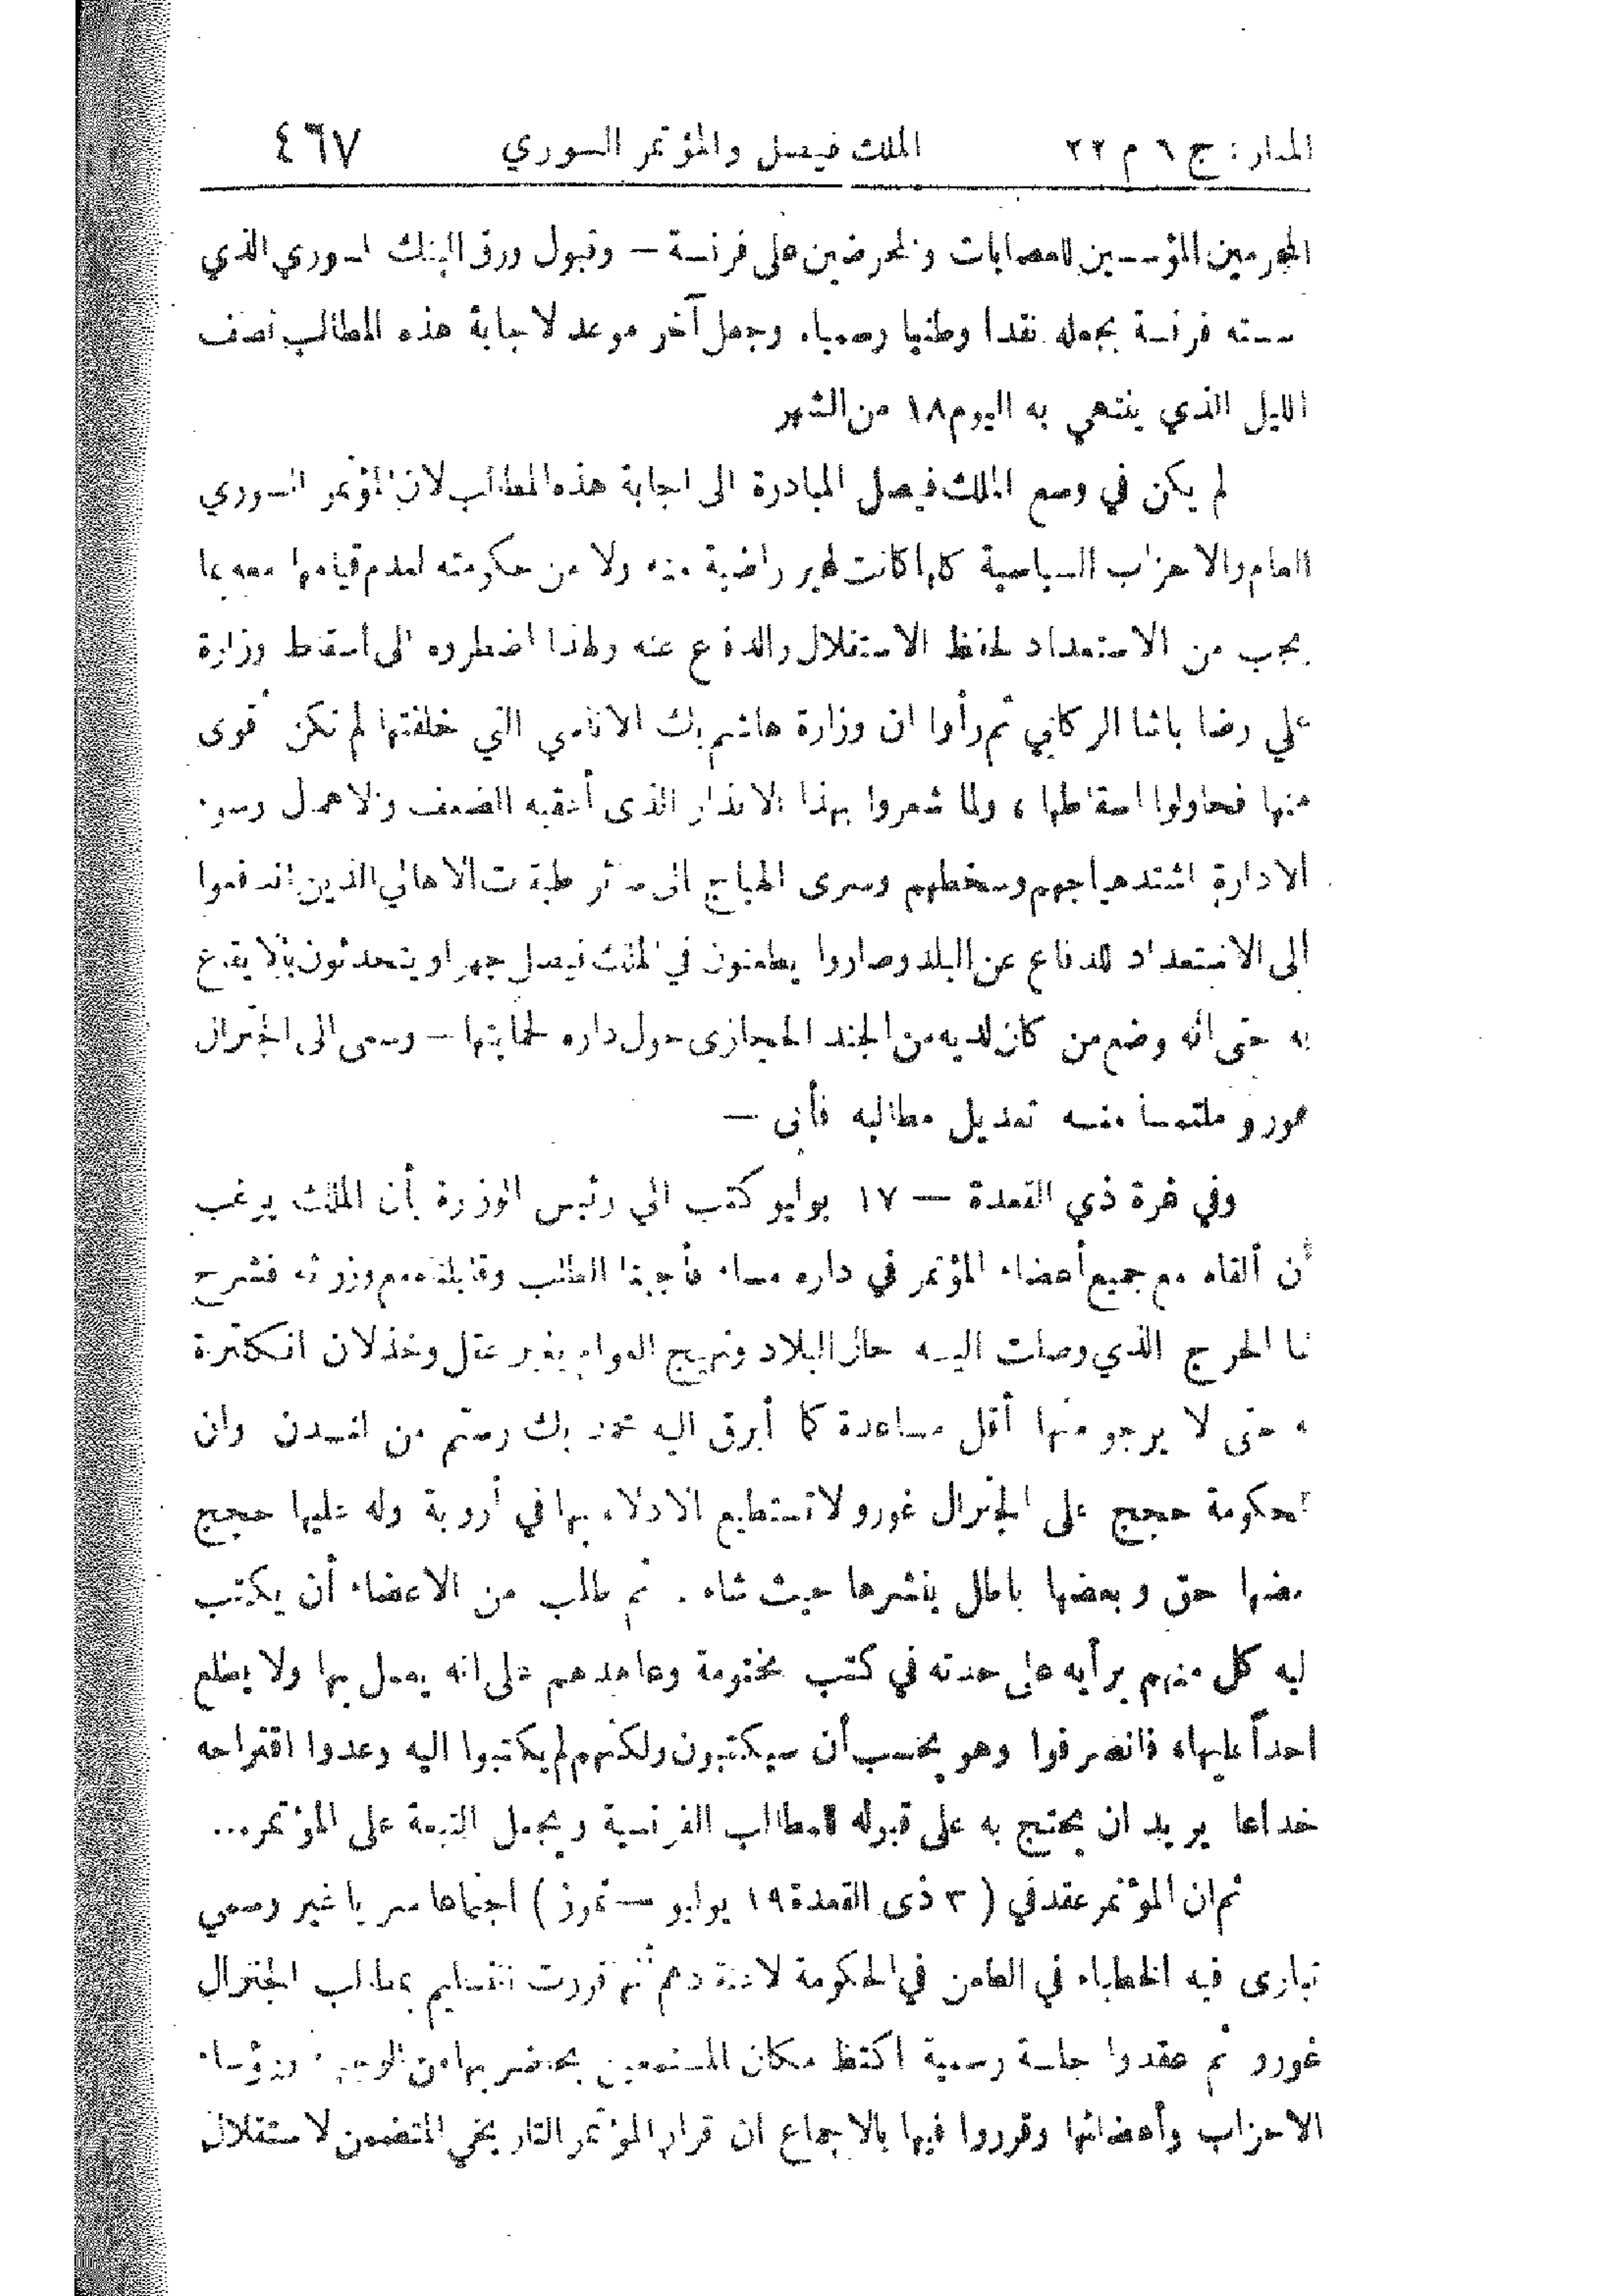 المنار: ج ٦ م ٢٢ الملك فيصل والمؤتمر السوري ٤٦٧
المجرمين المؤسسين للعصابات والمحرضين على فرنسة — وقبول ورق البنك السوري الذي
سسته فرنسة بجعله نقدا وطنيا رسميا، وجعل آخر موعد لاجابة هذه المطالب نصف
الليل الذي ينتهي به اليوم ١٨ من الشهر
لم يكن في وسع الملك فيصل المبادرة الى اجابة هذه المطالب لان المؤتمر السوري
العام والاحزاب السياسية كلها كانت غير راضية منه ولا من حكومته لعدم قيامها معه بما
يجب من الاستعداد لحفظ الاستقلال والدفاع عنه ولهذا اضطروه الى أسقاط وزارة
علي رضا باشا الركابي ثم رأوا ان وزارة هاشم بك الاتاسي التي خلفتها لم تكن أقوى
منها فحاولوا اسقاطها ، ولما شعروا بهذا الانذار الذى أعقبه الضعف والاهمال وسوء
الادارة اشتد هياجهم وسخطهم وسرى الهياج الى سائر طبقات الاهالي الذين اندفعوا
الى الاستعداد للدفاع عن البلد وصاروا يطعنون في الملك فيصل جهرا ويتحدثون بالايقاع
به حتى انه وضع من كان لديه من الجند الحجازى حول داره لحمايتها — وسعى الى الجنرال
غورو ملتمسا منه تعديل مطالبه فأبى —
وفي غرة ذي القعدة — ١٧ يوليو كتب الي رئيس الوزارة بأن الملك يرغب
أن ألقاه مع جميع أعضاء المؤتمر في داره مساء فأجبنا الطلب وقابلناه مع وزرائه فشرح
لنا الحرج الذي وصلت اليه حال البلاد وتهييج العوام بغير عقل وخذلان انكلترة
له حتى لا يرجو منها أقل مساعدة كما أبرق اليه محمد بك رستم من لندن وان
لحكومة حجج على الجنرال غورو لا تستطيع الادلاء بها في أروبة وله عليها حجج
بعضها حق وبعضها باطل ينشرها حيث شاء . ثم طلب من الاعضاء أن يكتب
ليه كل منهم برأيه على حدته في كتب مختومة وعاهدهم على انه يعمل بها ولا يطلع
احداً عليها، فانصرفوا وهو يحسب أن سيكتبون ولكنهم لم يكتبوا اليه وعدوا اقتراحه
خداعا يريد ان يحتج به على قبوله للمطالب الفرنسية ويجعل التبعة على المؤتمر...
ثم ان المؤتمر عقد في ( ٣ ذى القعدة ١٩ يوليو — تموز ) اجتماعا سريا غير رسمي
تبارى فيه الخطباء في الطعن في الحكومة لاعتقادهم أنها قررت التسليم بمطالب الجنرال
غورو ثم عقدوا جلسة رسمية اكتظ مكان المستمعين بحاضريها من الوجهاء ورؤساء
الاحزاب وأعضائها وقرروا فيها بالاجماع ان قرار المؤتمر التاريخي المتضمن لاستقلال